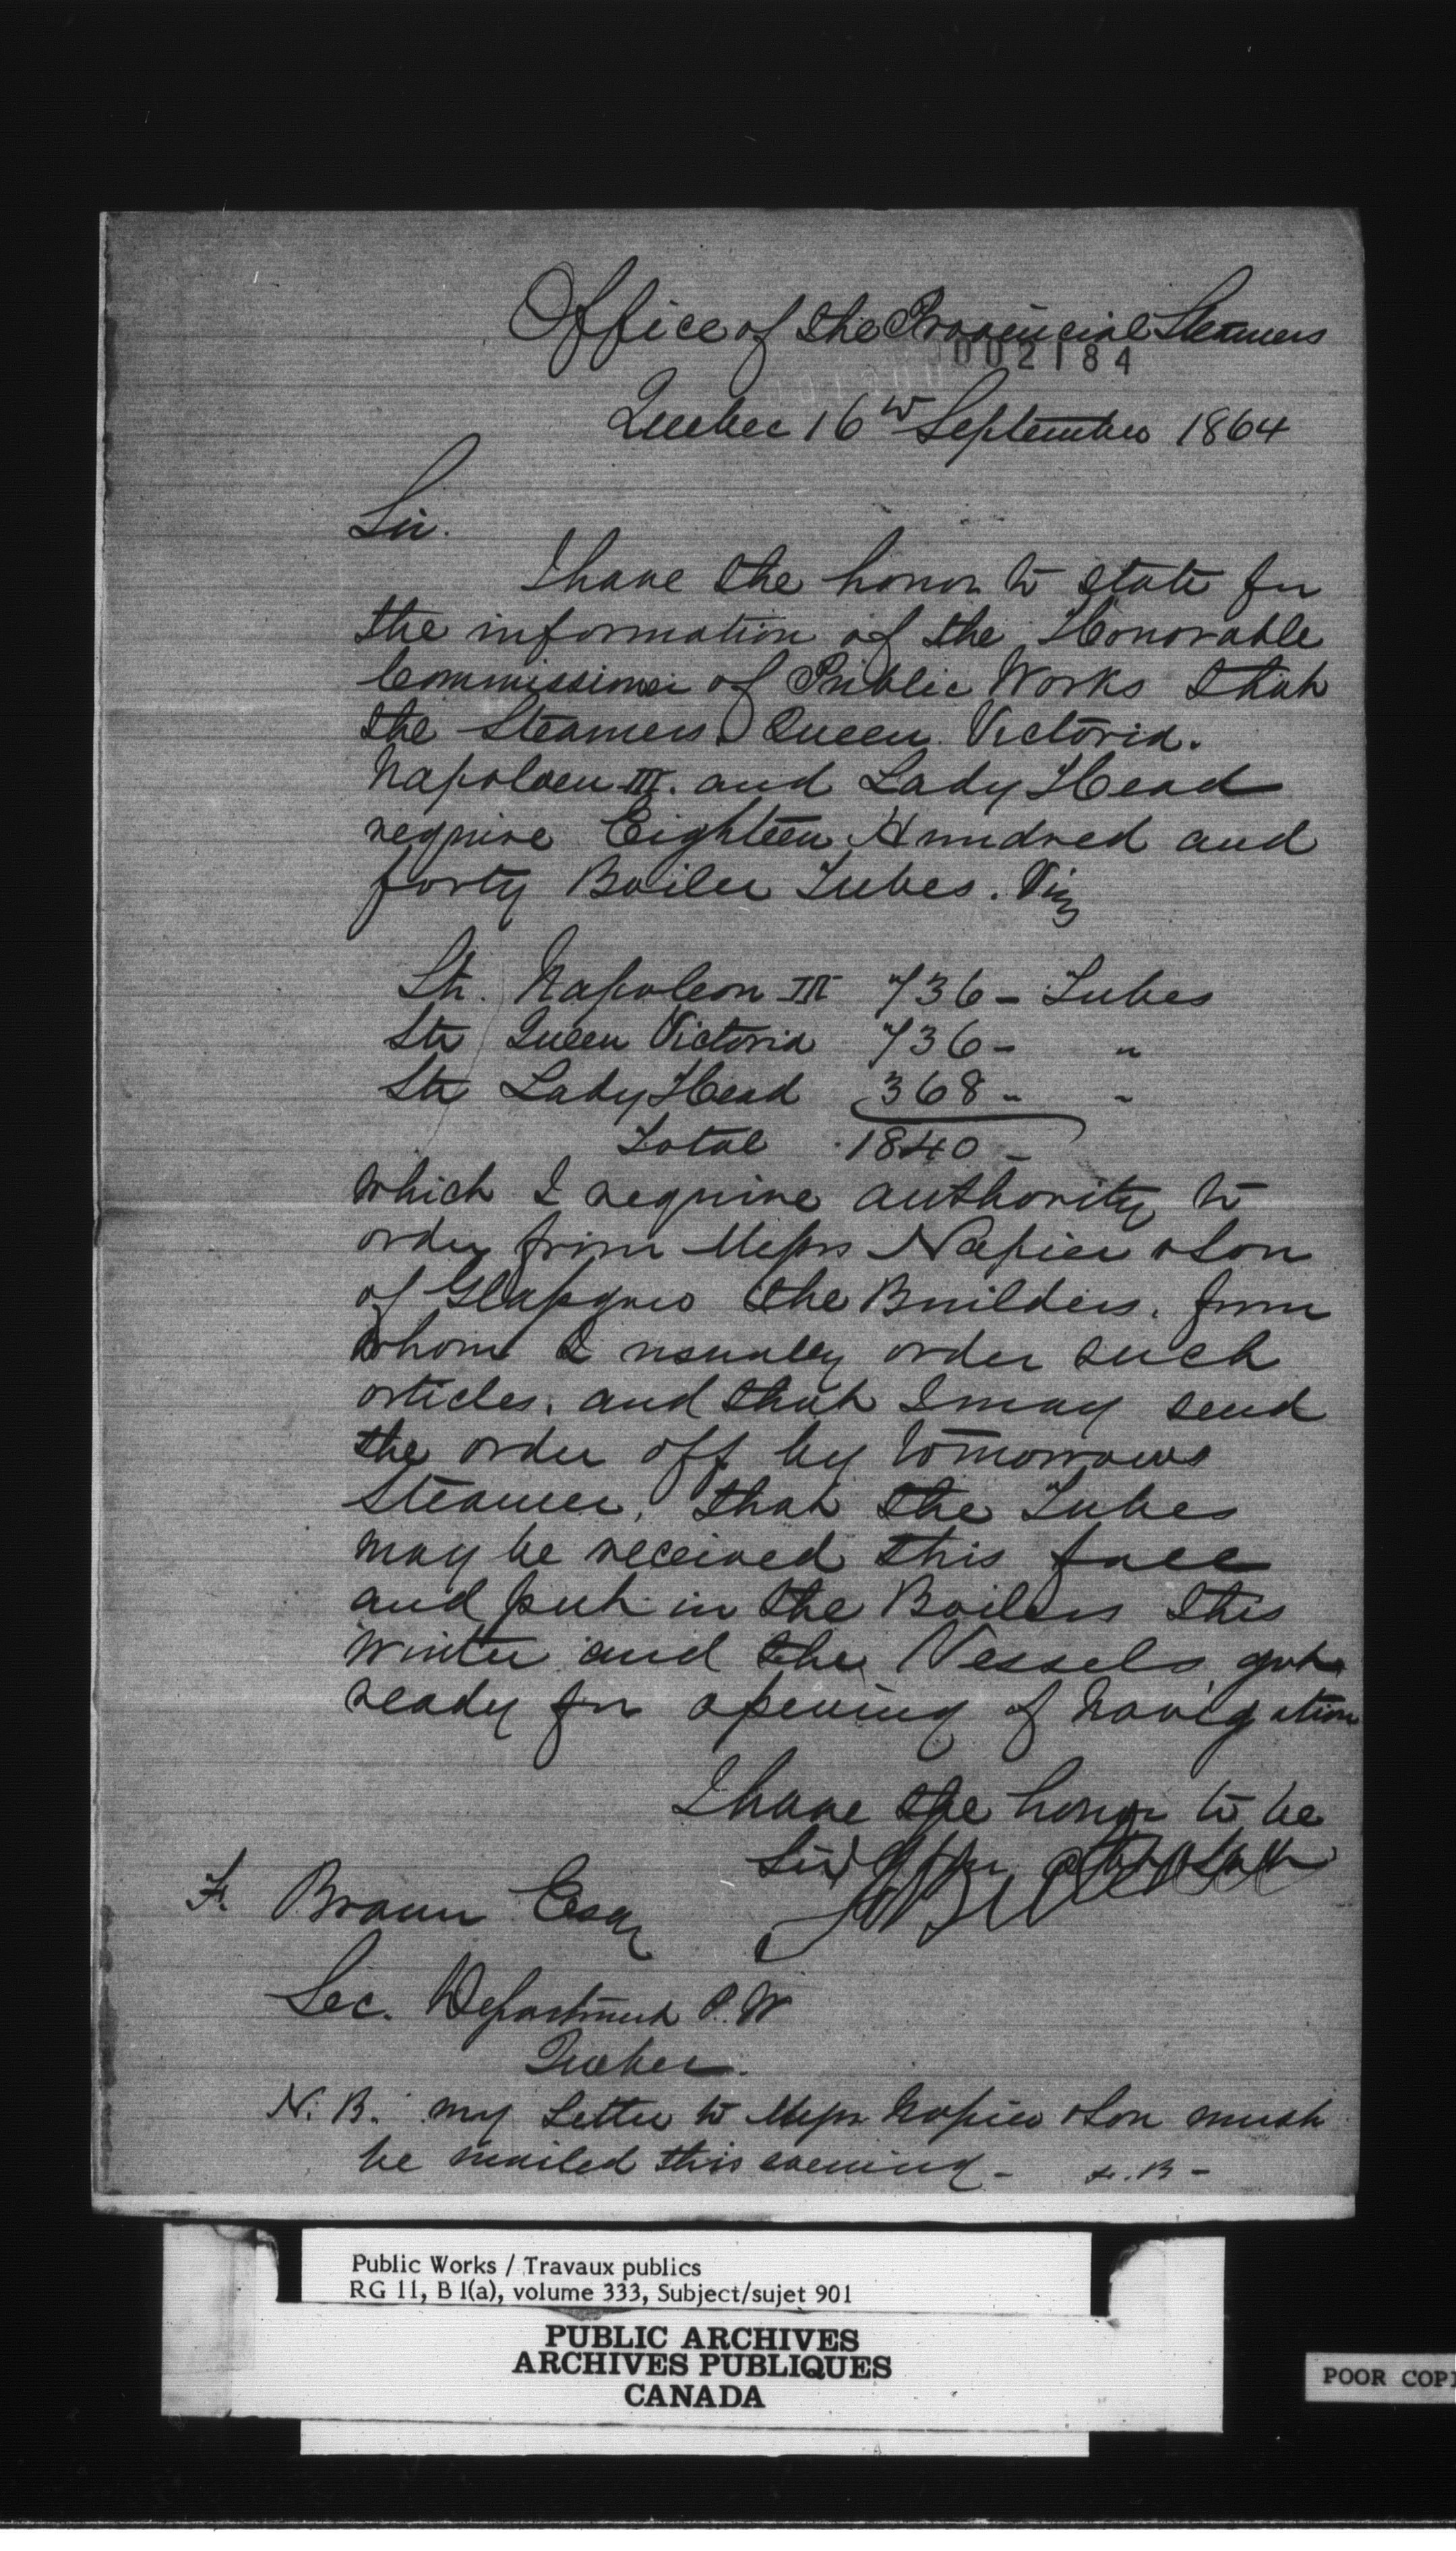 Office of the Provincial Steamers
002184
Quebec 16th September 1864
Sir.
I have the honor to state for
the information of the Honorable
Commissioner of Public Works that
the Steamers Queen Victoria.
Napolaen III. and Lady Head
require Eighteen Hundred and
forty Boiler Tubes. Viz
Str. Napoleon III 736 - Tubes
Str Queen Victoria 736 - "
Str Lady Head 368 - "
Total 1840 -
which I require authority to
order from Messrs Napier & Son
of Glasgow the Builders. from
whom I usually order such
articles. and that I may send
the order off by tomorrows
Steamer, that the Tubes
may be received this fall
and put in the Boilers this
winter and the Vessels got
ready for opening of Navigation
I have the honor to be
Sir
F. Braun Esqr
Sec. Department P. W
Quebec.
N. B. my Letter to Messrs Napier & Son must
be mailed this evening - F. B -
Public Works / Travaux publics
RG 11, B 1(a), volume 333, Subject/sujet 901
PUBLIC ARCHIVES
ARCHIVES PUBLIQUES
CANADA
POOR COPI